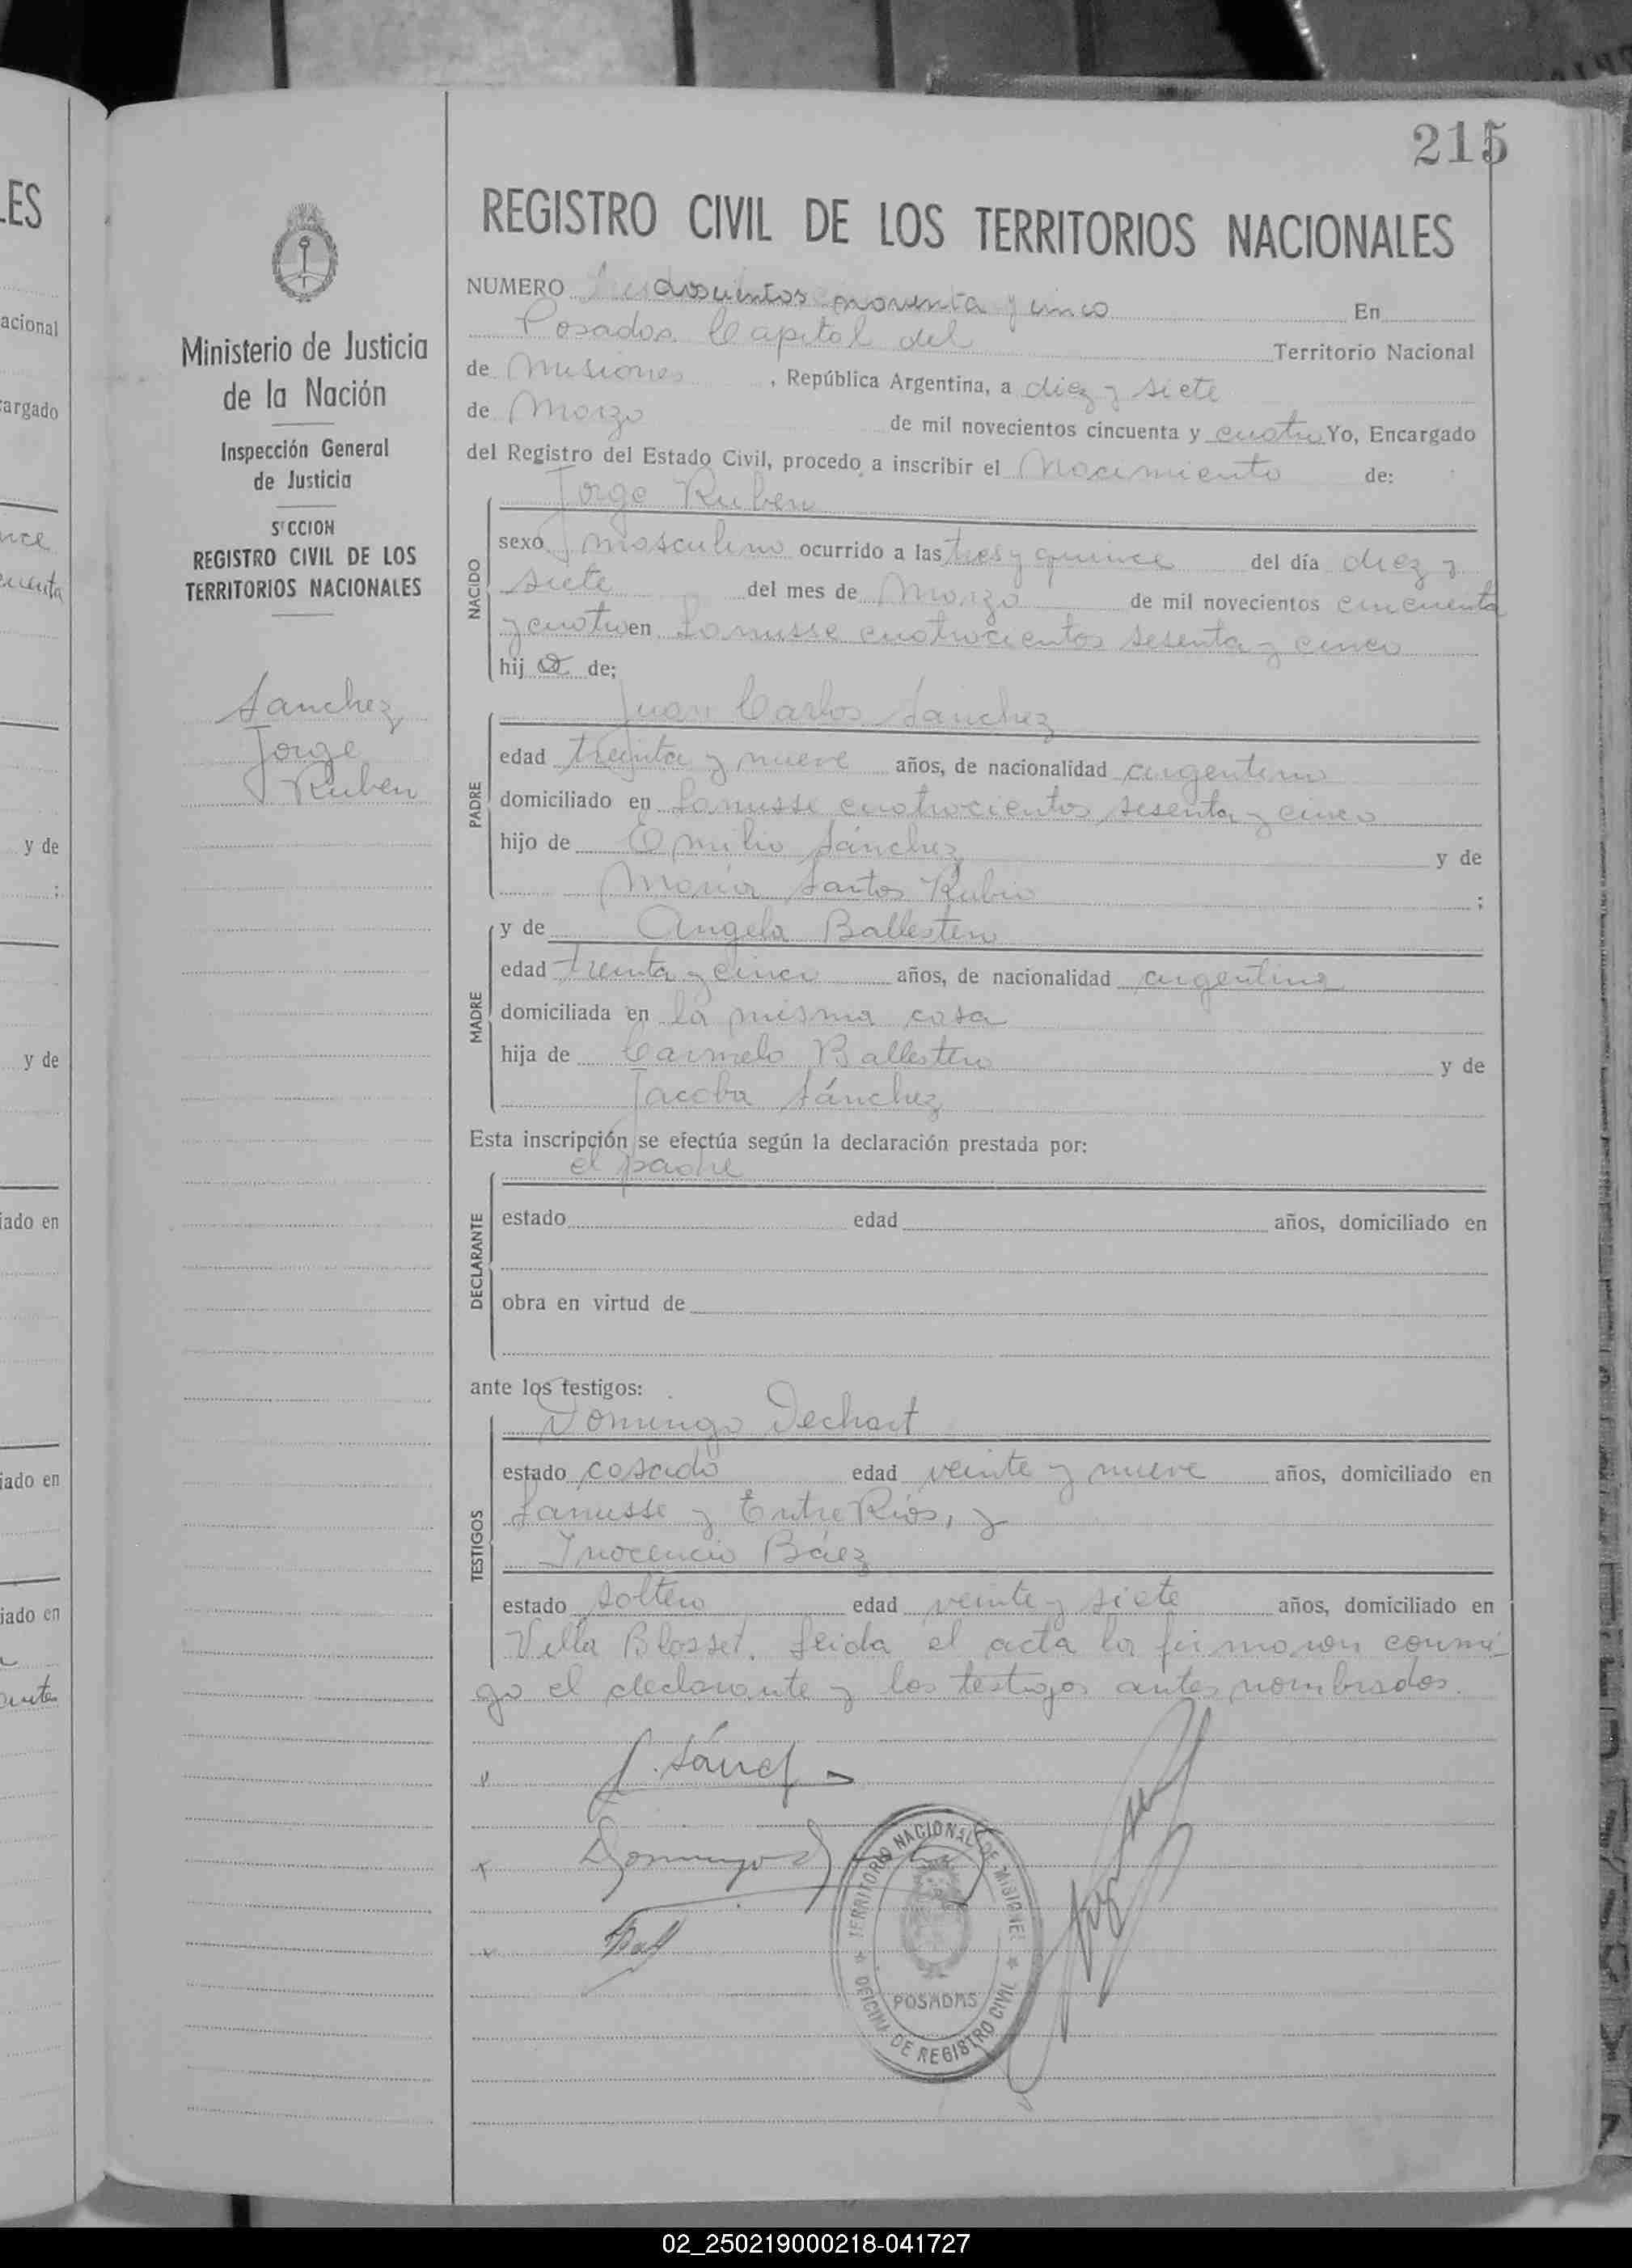 215
REGISTRO CIVIL DE LOS TERRITORIOS NACIONALES
NUMERO doscientos noventa y cinco En
Posadas Capital del Territorio Nacional
de Misiones, República Argentina, a diez y siete
de Marzo de mil novecientos cincuenta y cuatro Yo, Encargado
del Registro del Estado Civil, procedo a inscribir el Nacimiento de:
Jorge Ruben
NACIDO
sexo masculino ocurrido a las tres y quince del día diez y
siete del mes de Marzo de mil novecientos cincuenta
y cuatro en Lanusse cuatrocientos sesenta y cinco
hijo de;
Juan Carlos Sanchez
PADRE
edad treinta y nueve años, de nacionalidad argentino
domiciliado en Lanusse cuatrocientos sesenta y cinco
hijo de Emilio Sánchez y de
María Santos Rubio ;
MADRE
y de Angela Ballestero
edad treinta y cinco años, de nacionalidad argentina
domiciliada en la misma casa
hija de Carmelo Ballestero y de
Jacoba Sánchez
Esta inscripción se efectúa según la declaración prestada por:
el padre
DECLARANTE
estado edad años, domiciliado en
obra en virtud de
ante los testigos:
Domingo Dechart
TESTIGOS
estado casado edad veinte y nueve años, domiciliado en
Lanusse y Entre Ríos, y
Inocencio Báez
estado soltero edad veinte y siete años, domiciliado en
Villa Blosset. Leida el acta la firmaron conmi
go el declarante y los testigos antes nombrados.
J. Sánch
Domingo
TERRITORIO NACIONAL DE MISIONES
POSADAS
OFICINA DE REGISTRO CIVIL
Ministerio de Justicia
de la Nación
Inspección General
de Justicia
SECCION
REGISTRO CIVIL DE LOS
TERRITORIOS NACIONALES
Sanchez
Jorge
Ruben
LES
acional
cargado
uenta
y de
;
y de
iado en
iado en
iado en
02_250219000218-041727